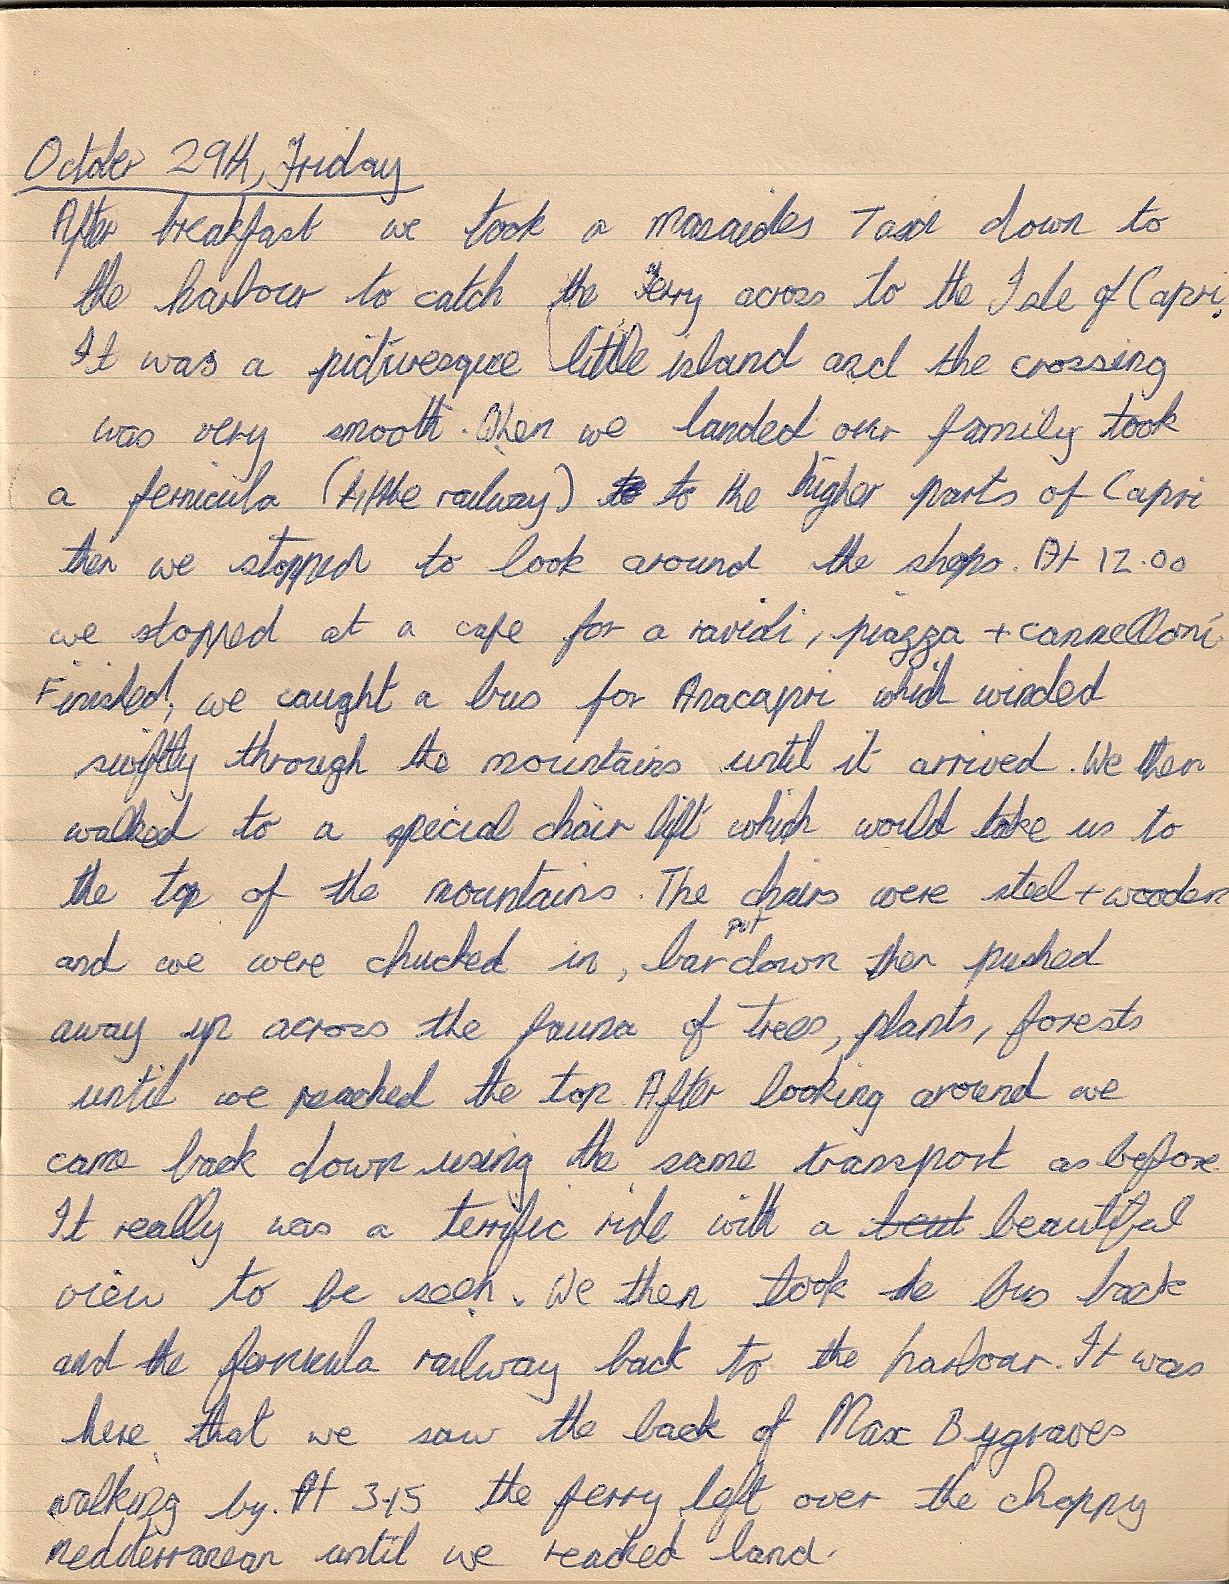 October 29th, Friday
After breakfast we took a Masaides Taxi down to
the harbour to catch the ferry across to the Isle of Capri.
It was a picturesque little island and the crossing
was very smooth. When we landed our family took
a fernicula (little railway) to to the higher parts of Capri
then we stopped to look around the shops. At 12.00
we stopped at a cafe for a ravioli, piazza + cannelloni
Finished, we caught a bus for Anacapri which winded
swiftly through the mountains until it arrived. We then
walked to a special chair lift which would take us to
the top of the mountains. The chairs were steel + wooden
and we were chucked in, bar put down then pushed
away up across the fauna of trees, plants, forests
until we reached the top. After looking around we
came back down using the same transport as before.
It really was a terrific ride with a beaut beautiful
view to be seen. We then took the bus back
and the fernicula railway back to the harbour. It was
here that we saw the back of Max Bygraves
walking by. At 3.15 the ferry left over the choppy
Mediterranean until we reached land.